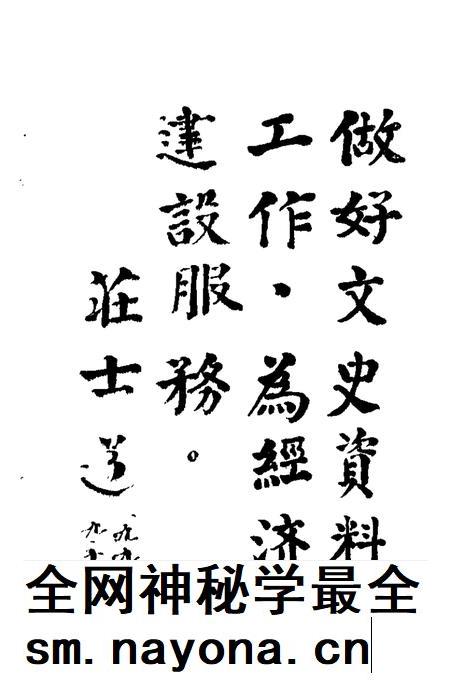 做好文史資料
工作、為經济
建設服務。
莊士道
全网神秘学最全
sm.nayona.cn